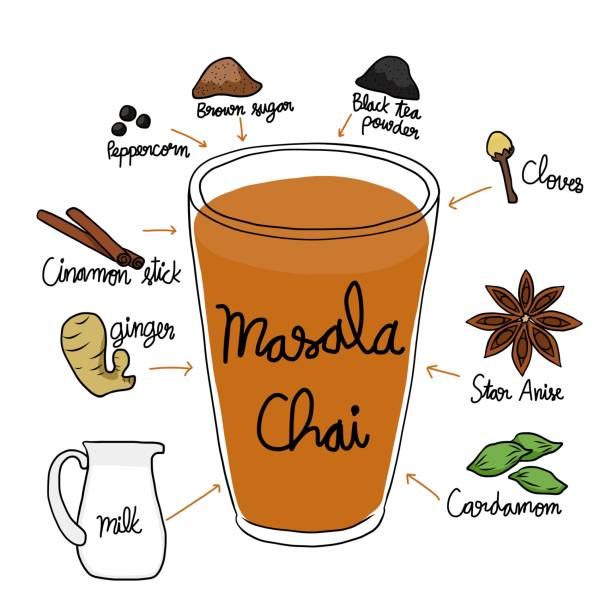 Brown sugar
Black tea
powder
Peppercorn
Cloves
Cinamon stick
ginger
Masala
Chai
Star Anise
Cardamom
milk